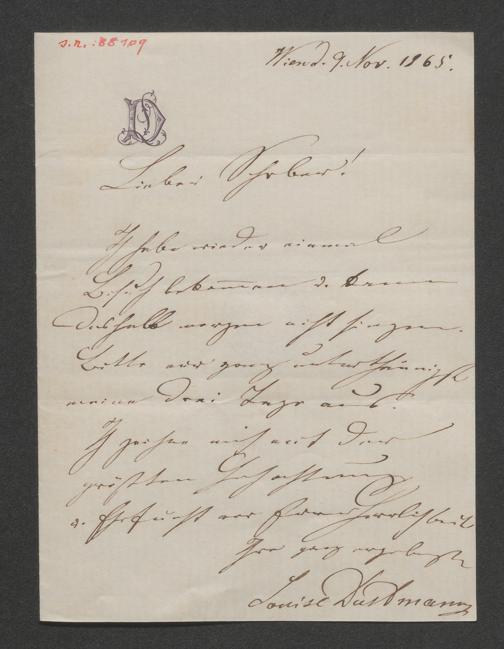 s.n.:88109
Wien d. 9. Nov. 1865.
LD
Lieber Schober!
Ich habe wieder einmal
Besuch bekommen u. kann
deshalb morgen nicht singen.
Bitte mir ganz unterthänigst
meine drei Tage aus.
Ich zeichne mich mit der
größten Hochachtung
u. Ehrfurcht vor Euer Herrlichkeit
Ihre ganz ergebenste
Louise Dustmann